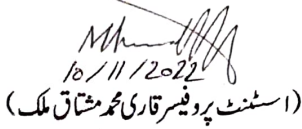 10/11/2022
(اسسٹنٹ پروفیسر قاری محمد مشتاق ملک)